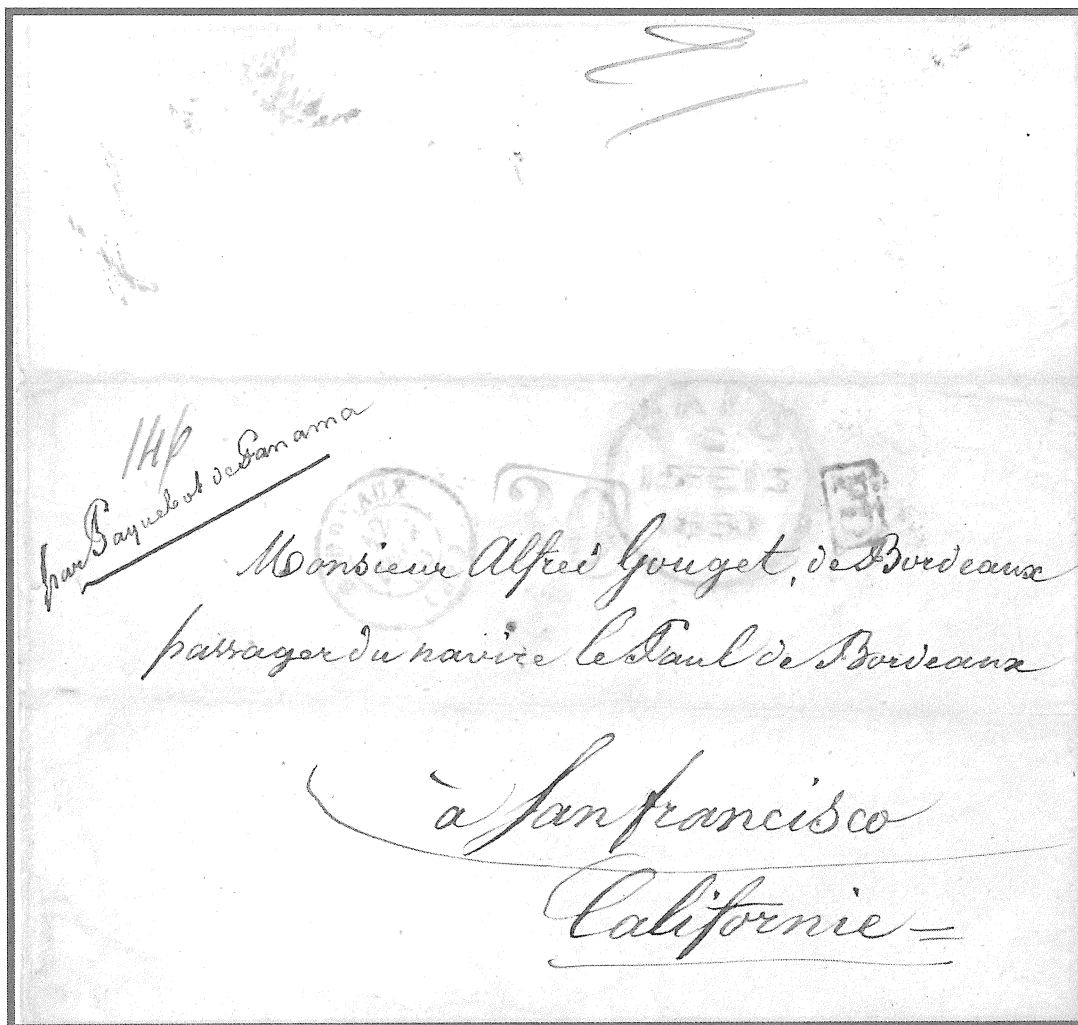 146
par Paquebot de Panama
Monsieur Alfred Gouget, de Bordeaux
passager du navire le Paul de Bordeaux
à San francisco
Californie =